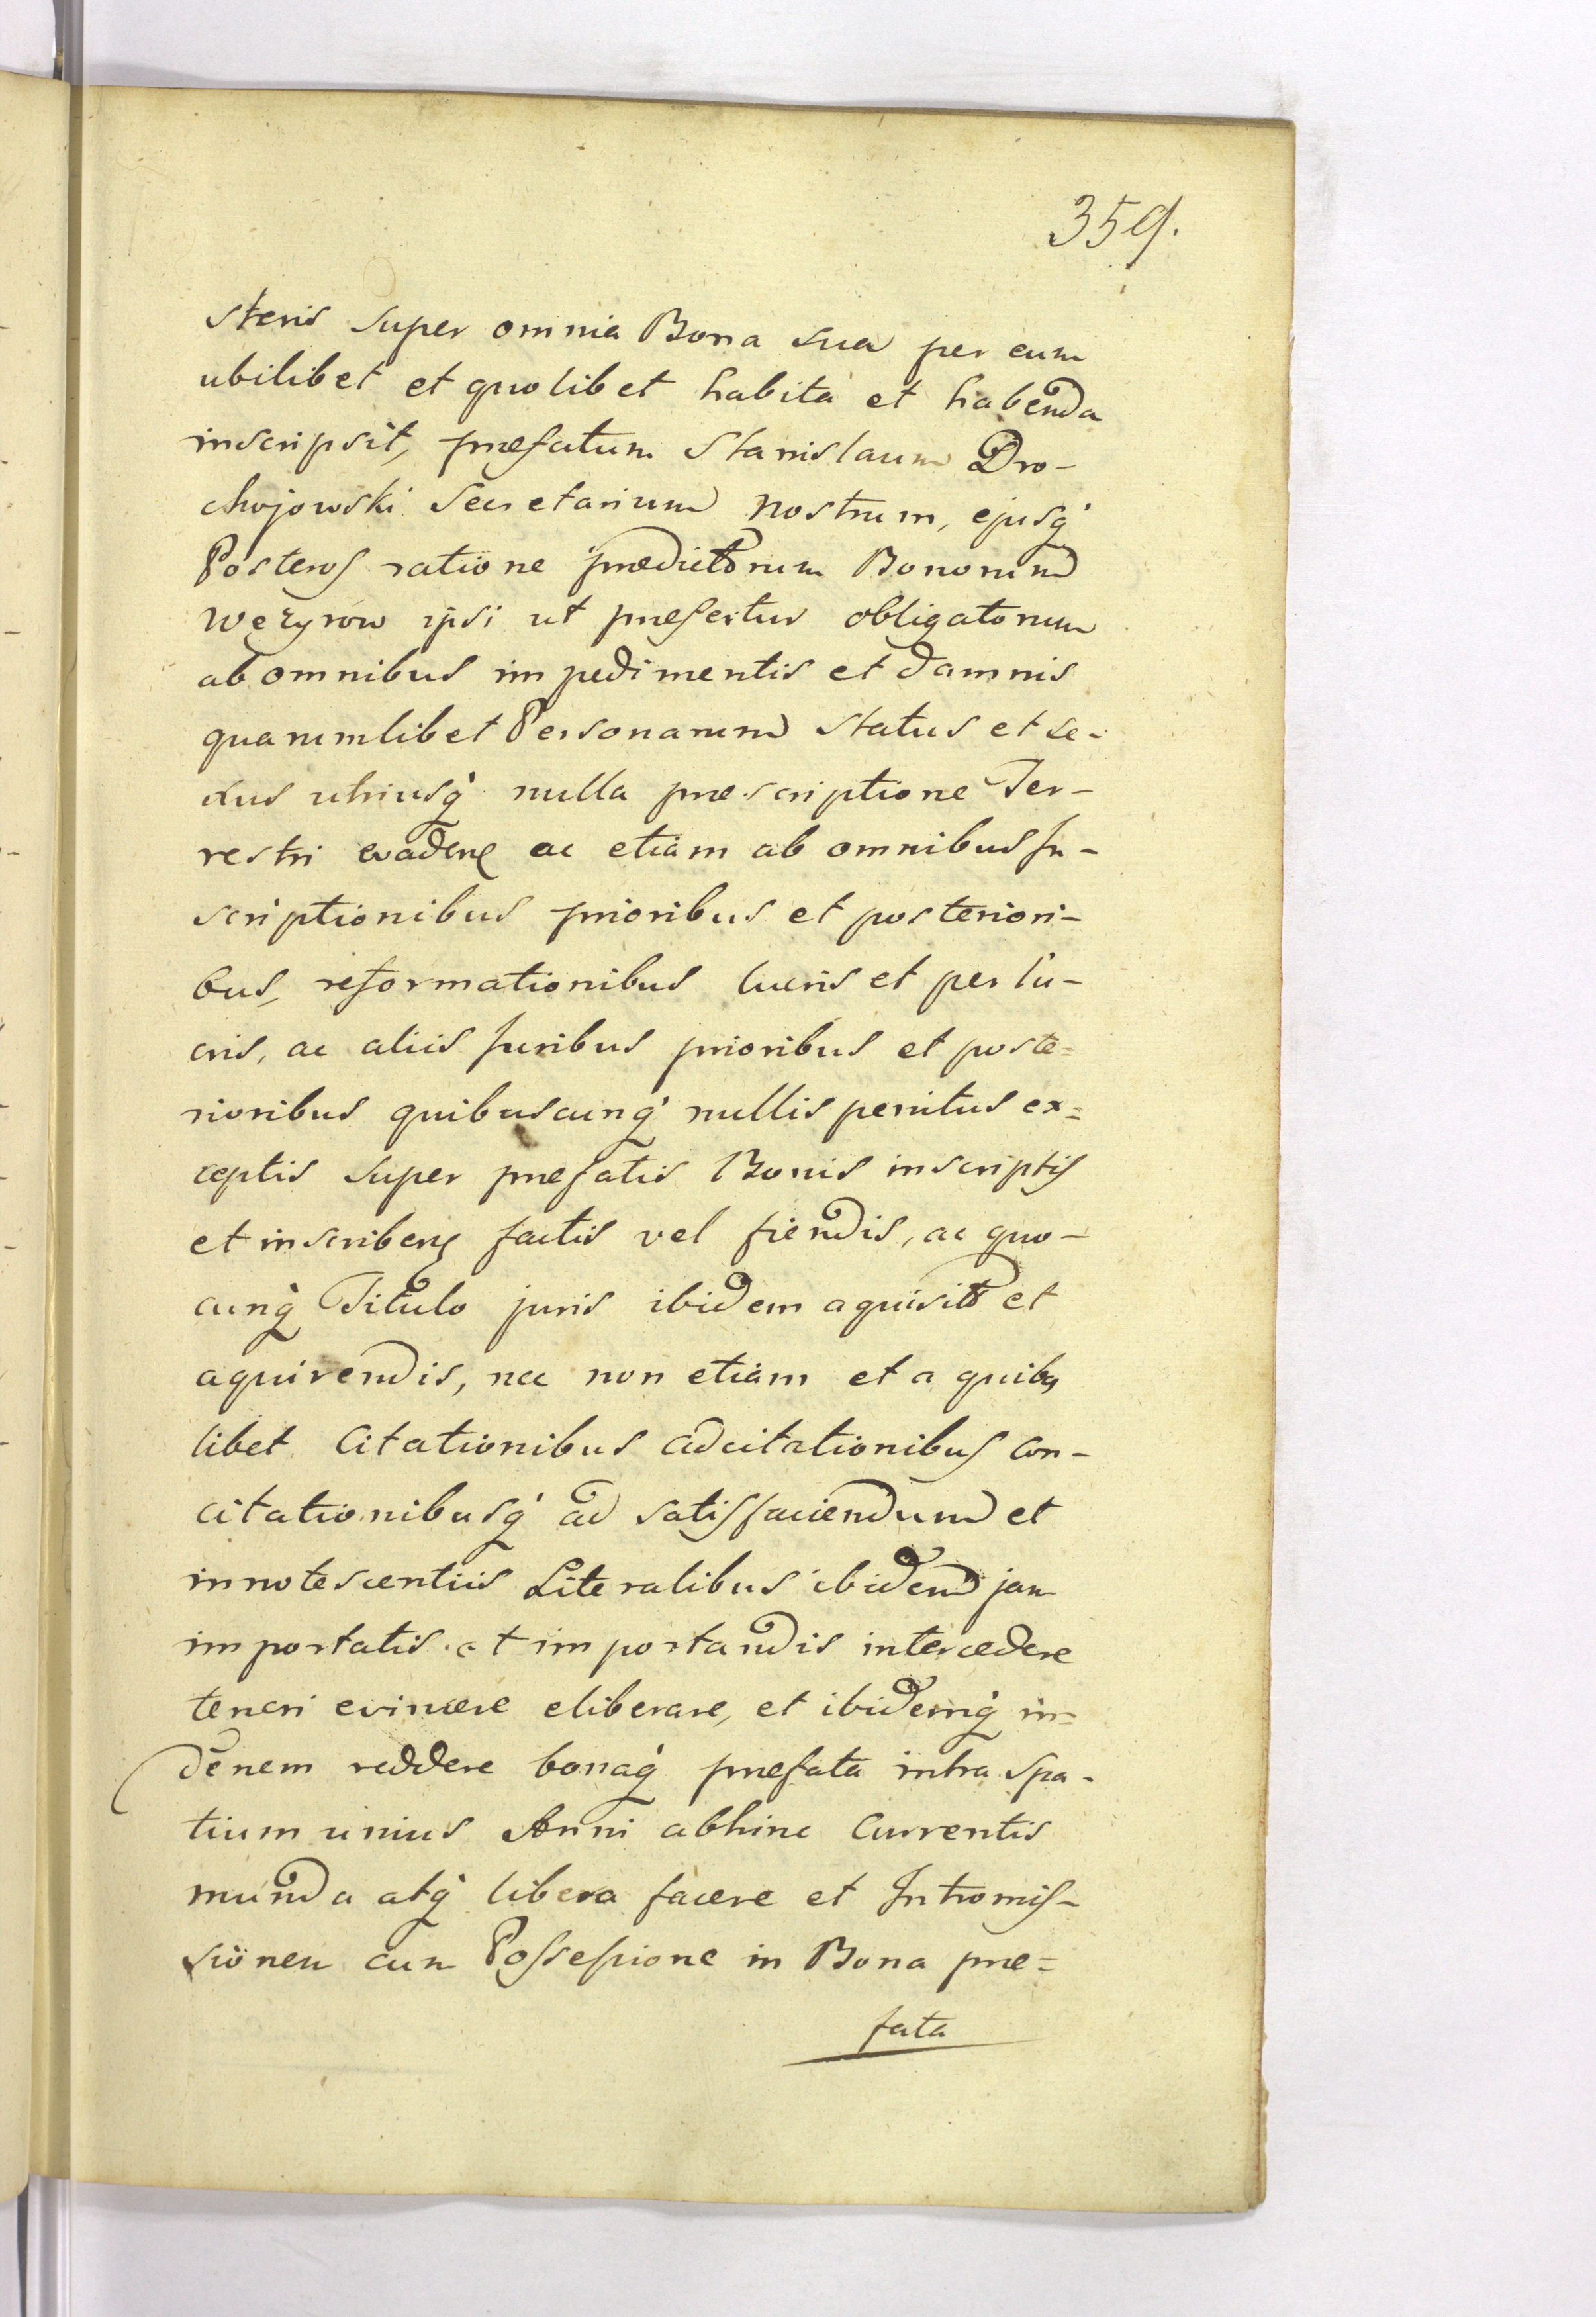 359.
steris super omnia Bona sua per eum
ubilibet et quolibet habita et habenda
inscripsit, praefatum Stanislaum Dro-
chojowski Secretarium nostrum, ejusq́
Posteros ratione praedictorum Bonorum
Węzyrow ipsi ut praefertur obligatorum
ab omnibus impedimentis et damnis
quarumlibet Personarum status et se-
xus utriusq́ nulla praescriptione Ter-
restri evadere ac etiam ab omnibus In-
scriptionibus prioribus et posteriori-
bus, reformationibus lucris et perlu-
cris, ac aliis Juribus prioribus et poste=
rioribus quibuscunq́ nullis penitus ex=
ceptis super praefatis Bonis inscriptis
et inscriben factis vel fiendis, ac quo-
cunq́ Titulo juris ibidem aquisito et
aquirendis, nec non etiam et a quibus
libet Citationibus adcitationibus con-
citationibusq́ ad satisfaciendum et
innotescentiis Literalibus ibidem jam
importatis et importandis intercedere
teneri evincere eliberare, et ibidemq́ in=
denem reddere bonaq́ praefata intra spa-
tium unius Anni abhinc currentis
munda atq́ libera facere et Intromis-
sionem cum Possessione in Bona prae=
fata